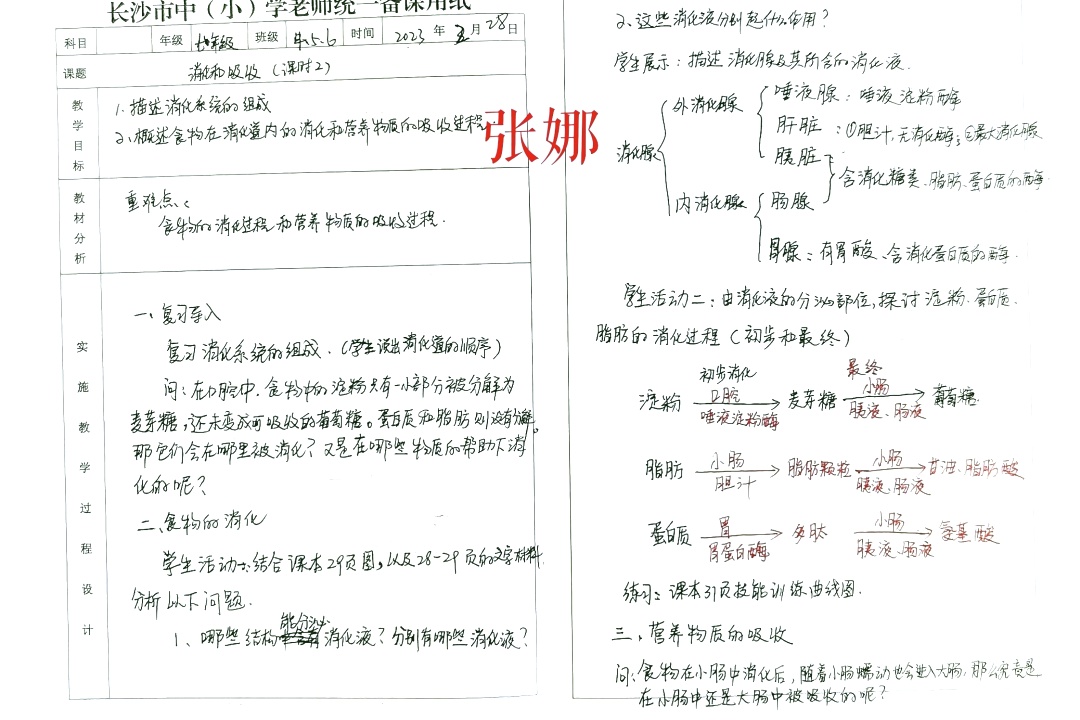 长沙市中（小）学老师统一备课用纸
科目 年级 七年级 班级 4.5.6 时间 2023 年 五 月 28 日
课题 消化和吸收（课时2）
教学目标
1. 描述消化系统的组成
2. 概述食物在消化道内的消化和营养物质的吸收过程.
教材分析
重难点:
食物的消化过程和营养物质的吸收过程.
实施教学过程设计
一、复习导入
复习消化系统的组成.（学生说出消化道的顺序）
问: 在口腔中. 食物中的淀粉只有一小部分被分解为
麦芽糖, 还未变成可吸收的葡萄糖。蛋白质和脂肪则没有分解。
那它们会在哪里被消化? 又是在哪些物质的帮助下消
化的呢?
二、食物的消化
学生活动一: 结合课本29页图, 以及28-29页的文字材料
分析以下问题.
能分泌
1、哪些结构消化液? 分别有哪些消化液?
张娜
2、这些消化液分别起什么作用?
学生展示: 描述消化腺及其所含的消化液.
消化腺
外消化腺
唾液腺: 唾液淀粉酶
肝脏: ①胆汁, 无消化酶; ②最大消化腺
胰脏
含消化糖类、脂肪、蛋白质的酶
内消化腺
肠腺
胃腺: 有胃酸、含消化蛋白质的酶.
学生活动二: 由消化液的分泌部位, 探讨淀粉. 蛋白质.
脂肪的消化过程（初步和最终）
初步消化 最终
淀粉 口腔 唾液淀粉酶 → 麦芽糖 小肠 胰液、肠液 → 葡萄糖
脂肪 小肠 胆汁 → 脂肪颗粒 小肠 胰液、肠液 → 甘油、脂肪酸
蛋白质 胃 胃蛋白酶 → 多肽 小肠 胰液、肠液 → 氨基酸
练习: 课本31页技能训练曲线图.
三、营养物质的吸收
问: 食物在小肠中消化后, 随着小肠蠕动也会进入大肠, 那么究竟是
在小肠中还是大肠中被吸收的呢?